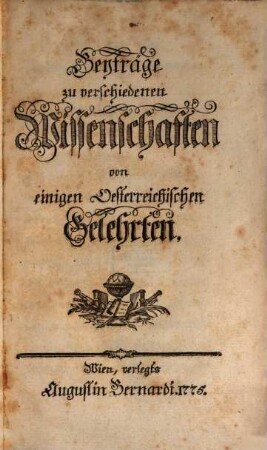 Beyträge
zu verschiedenen
Wissenschaften
von
einigen Oesterreichischen
Gelehrten.
Wien, verlegts
Augustin Bernardi. 1775.